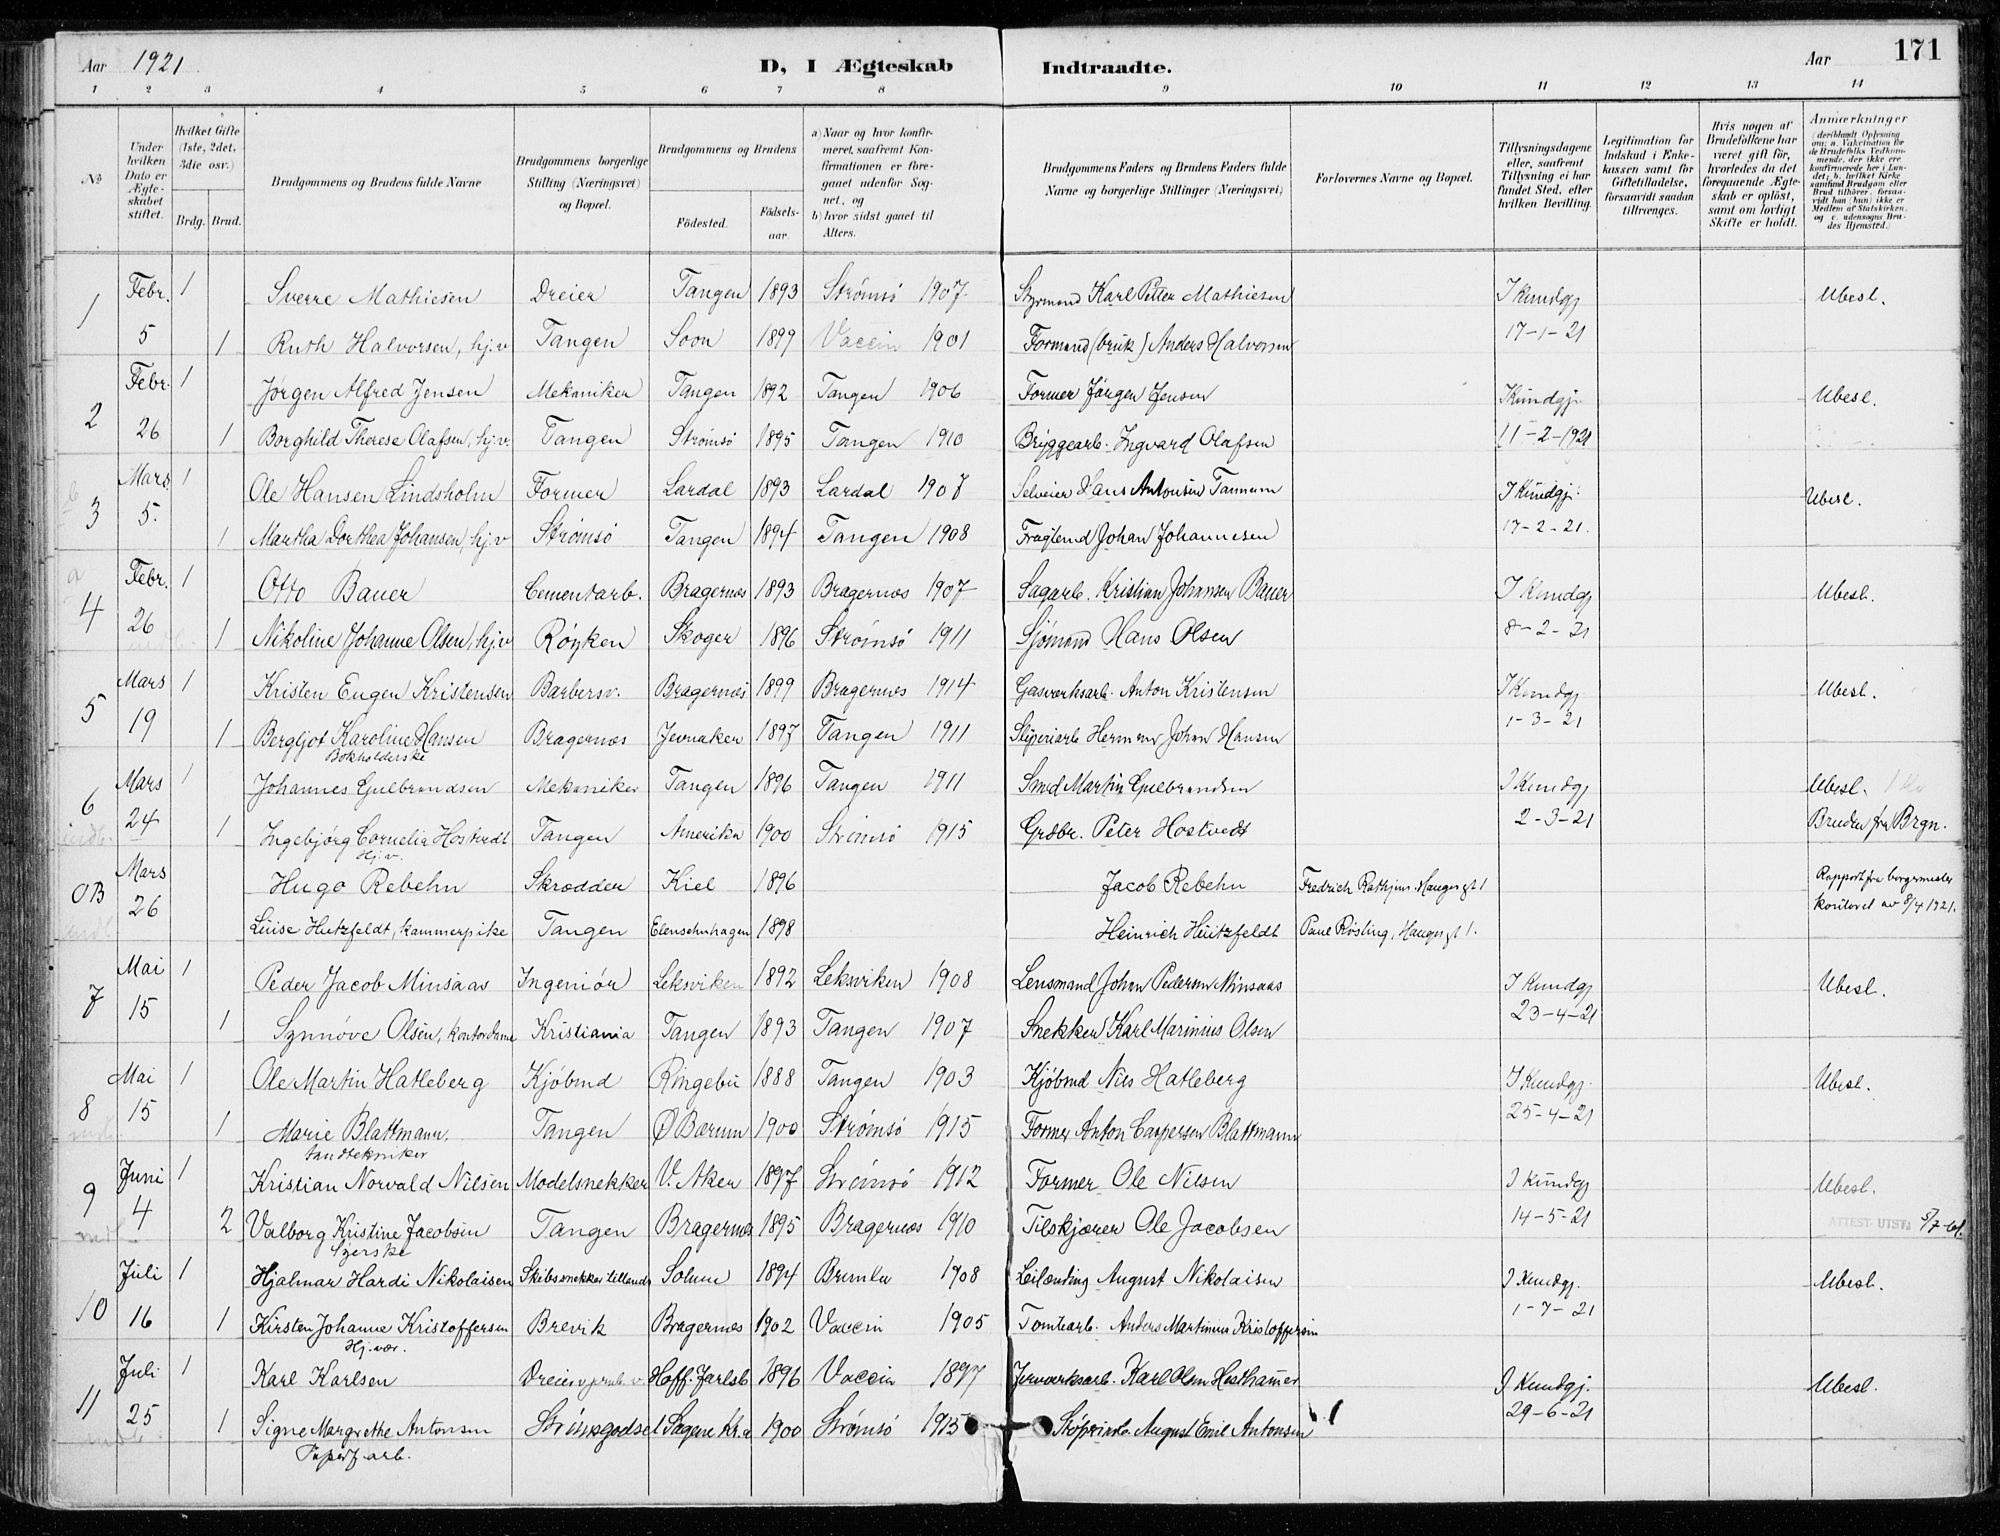 Aar 1921
D, I Ægteskab Indtraadte.
Aar 171
1 2 3 4 5 6 7 8 9 10 11 12 13 14
No
Under hvilken Dato er Ægteskabet stiftet.
Hvilket Gifte (1ste, 2det, 3die osv.)
Brdg. Brud.
Brudgommens og Brudens fulde Navne
Brudgommens borgerlige Stilling (Næringsvei) og Bopæl.
Brudgommens og Brudens
Födested. Födselsaar.
a) Naar og hvor konfirmeret, saafremt Konfirmationen er foregaaet udenfor Sognet, og
b) hvor sidst gaaet til Alters.
Brudgommens Faders og Brudens Faders fulde Navne og borgerlige Stillinger (Næringsvei)
Forlovernes Navne og Bopæl.
Tillysningsdagene eller, saafremt Tillysning ei har fundet Sted, efter hvilken Bevilling.
Legitimation for Indskud i Enkekassen samt for Giftetilladelse, forsaavidt saadan tiltrænges.
Hvis nogen af Brudefolkene har været gift før, hvorledes da det foregaaende Ægteskab er oplöst, samt om lovligt Skifte er holdt.
Anmærkninger (deriblandt Oplysning om: a. Vakcination for de Brudefolks Vedkommende, der ikke ere konfirmerede her i Landet; b. hvilket Kirkesamfund Brudgom eller Brud tilhörer, forsaavidt han (hun) ikke er Medlem af Statskirken, og c. udensogns Brudes Hjemsted.)
1 Febr. 1 Sverre Mathiesen Dreier Tangen 1893 Strømsø 1907 Styrmand Karl Petter Mathiesen I Kundgj Ubesl.
5 1 Ruth Halvorsen, hj.v Tangen Soon 1899 Vaccin 1901 Formand (bruk) Anders Halvorsen 17-1-21
2 Febr. 1 Jørgen Alfred Jensen Mekaniker Tangen 1892 Tangen 1906 Former Jørgen Jensen I Kundgj. Ubesl.
26 1 Borghild Therese Olafsen, hj.v. Tangen Strømsø 1895 Tangen 1910 Bryggearb. Ingvard Olafsen 11-2-1921
3 Mars 1 Ole Hansen Lindsholm Former Lardal 1893 Lardal 1907 Selveier Hans Antonsen Tannum I Kundgj. Ubesl.
5. 1 Martha Dorthea Johansen, hj.v Strømsø Tangen 1894 Tangen 1908 Johan Johannesen 17-2-21.
4 Febr. 1 Otto Bauer Cementarb. Bragernæs 1893 Bragernæs 1907 Sagarb. Kristian Johansen Bauer I Kundgj Ubesl.
26 1 Nikoline Johanne Olsen, hj.v Røyken Skoger 1896 Strømsø 1911 Sjømand Hans Olsen 8-2-21
5 Mars 1 Kristen Eugen Kristensen Barbersv. Bragernæs 1899 Bragernæs 1914 Gasverksarb. Anton Kristensen I Kundgj Ubesl.
19 1 Bergljot Karoline Hansen Bragernæs Jevnaker 1897 Tangen 1911 Sliperiarb Herman Johan Hansen 1-3-21
Bokholderske
6 Mars 1 Johannes Gulbrandsen Mekaniker Tangen 1896 Tangen 1911 Smed Martin Gulbrandsen I Kundgj Ubesl.
24 1 Ingebjørg Cornelia Hostvedt Tangen Amerika 1900 Strømsø 1915 Grdbr. Peter Hostvedt 2-3-21 Bruden fra Brgn.
Hj.v.
0B Mars Hugo Rebehn Skrædder Kiel 1896 Jacob Rebehn Fredrich Rathjens Haugesgt 1 Rapport fra borgermester
26 Luise Hutzfeldt, kammerpike Tangen Elensehnhagen 1898 Heinrich Hutzfeldt Paul Rösling, Haugesgt 1. kontoret av 8/4 1921.
7 Mai 1 Peder Jacob Minsaas Ingeniør Leksviken 1892 Leksviken 1908 Lensmand Johan Pedersen Minsaas I Kundgj Ubesl.
15 1 Synnøve Olsen, kontordame Kristiania Tangen 1893 Tangen 1907 Snekker Karl Marinius Olsen 23-4-21
8 Mai 1 Ole Martin Hatleberg Kjøbmd Ringebu 1888 Tangen 1903 Kjøbmd Nils Hatleberg I Kundgj. Ubesl.
15 1 Marie Blattmann. Tangen Ø Bærum 1900 Strømsø 1915 Former Anton Caspersen Blattmann 25-4-21
Tandtekniker
9 Juni 1 Kristian Norvald Nilsen Modelsnekker V. Aker 1897 Strømsø 1912 Former Ole Nilsen I Kundgj Ubesl.
4 2 Valborg Kristine Jacobsen Tangen Bragernæs 1895 Bragernæs 1910 Tilskjærer Ole Jacobsen 14-5-21 ATTEST UTST.
Syerske
10 Juli 1 Hjalmar Hardi Nikolaisen Skibssnekker tillands Solum 1894 Brunla 1908 Leilænding August Nikolaisen I Kundgj. Ubesl.
16 1 Kirsten Johanne Kristoffersen Brevik Bragernæs 1902 Vaccin 1905 Tomtearb. Anders Martinius Kristoffersen 1-7-21
Hj.vær.
11 Juli 1 Karl Karlsen Hoff. Jarlsb 1896 Vaccin 1897 Jernverksarb. Karl Olsen Hesthammer I Kundgj. Ubesl.
25 1 Signe Margrethe Antonsen Strømsgodset Sagene Kr.a 1900 Strømsø 1915 August Emil Antonsen 29-6-21
Papirf.arb.